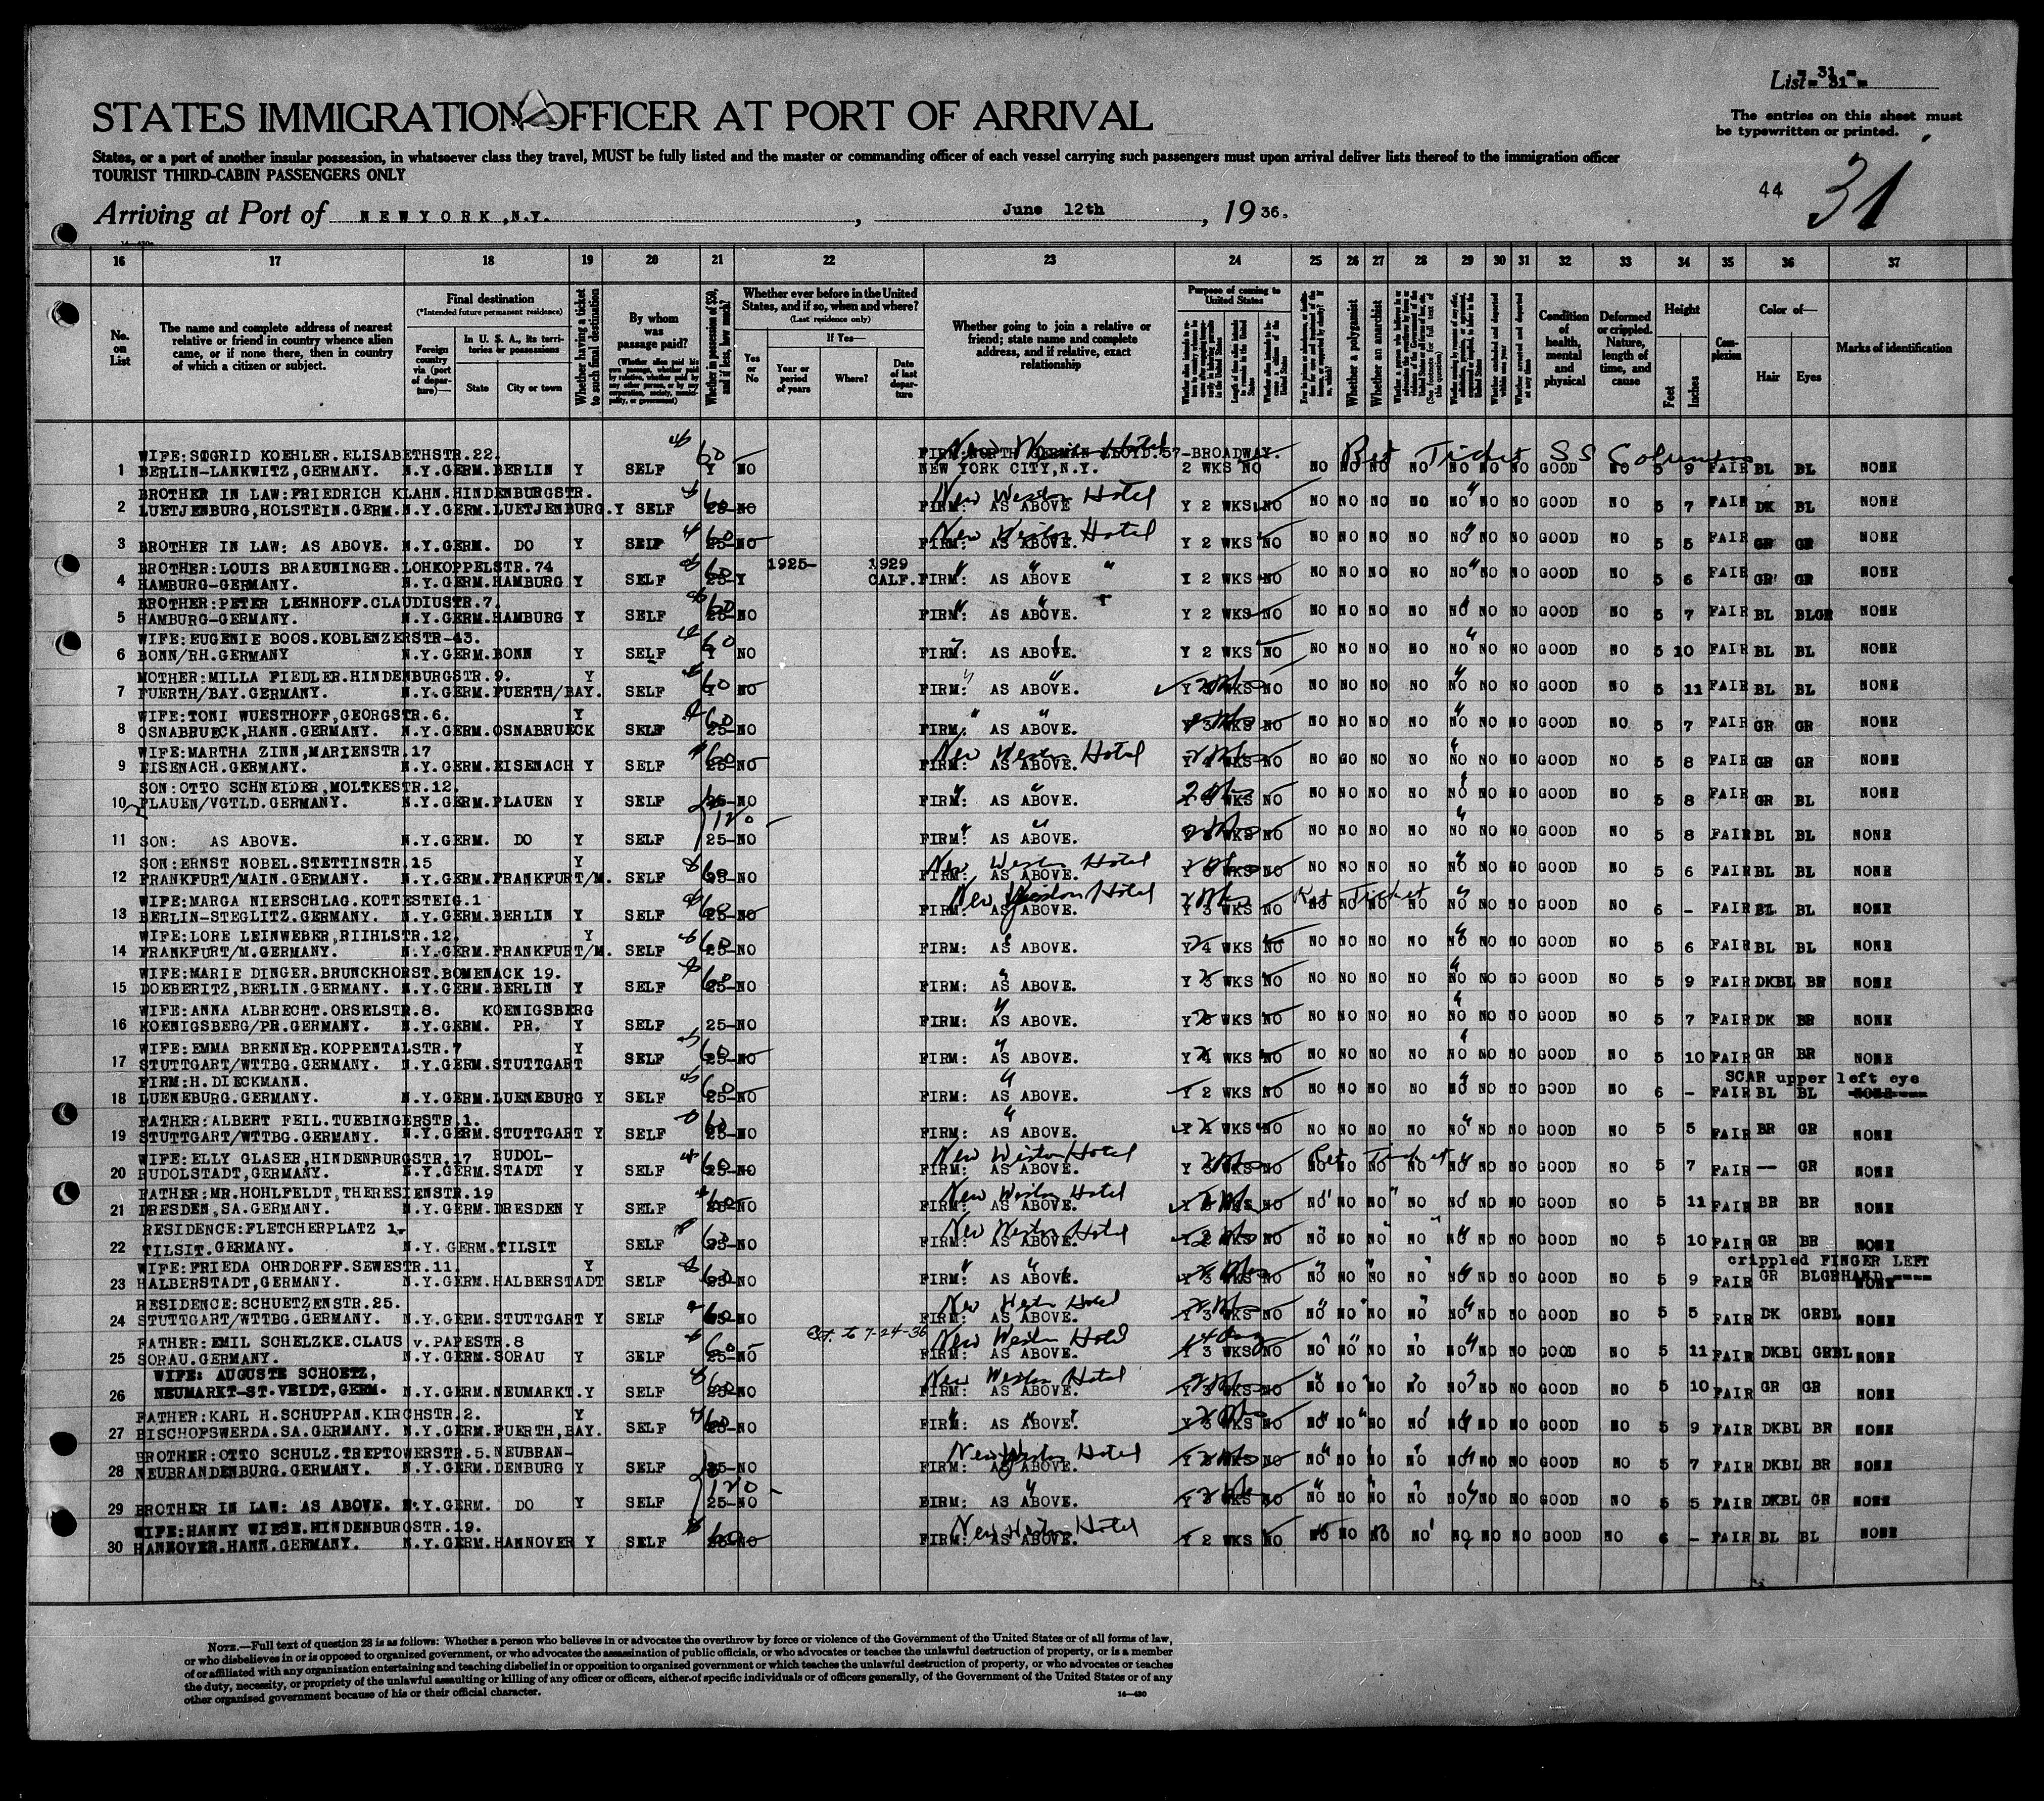 List - 31 -
- 31 -
The entries on this sheet must
be typewritten or printed.
STATES IMMIGRATION OFFICER AT PORT OF ARRIVAL
States, or a port of another insular possession, in whatsoever class they travel, MUST be fully listed and the master or commanding officer of each vessel carrying such passengers must upon arrival deliver lists thereof to the immigration officer
TOURIST THIRD-CABIN PASSENGERS ONLY
44 31
Arriving at Port of NEWYORK,N.Y. , June 12th , 1936.
16 17 18 19 20 21 22 23 24 25 26 27 28 29 30 31 32 33 34 35 36 37
No. on List
The name and complete address of nearest relative or friend in country whence alien came, or if none there, then in country of which a citizen or subject.
Final destination
(*Intended future permanent residence)
Foreign country via (port of departure)—
In U. S. A., its territories or possessions
State City or town
Whether having a ticket to such final destination
By whom was passage paid?
Whether in possession of $50, and if less, how much?
Whether ever before in the United States, and if so, when and where?
(Last residence only)
Yes or No
If Yes—
Year or period of years Where? Date of last departure
Whether going to join a relative or friend; state name and complete address, and if relative, exact relationship
Purpose of coming to United States
Whether a polygamist
Whether an anarchist
Condition of health, mental and physical
Deformed or crippled. Nature, length of time, and cause
Height
Feet Inches
Complexion
Color of—
Hair Eyes
Marks of identification
WIFE:SIGRID KOEHLER.ELISABETHSTR.22. 60 FIRM:NORTH GERMAN LLOYD.57-BROADWAY. Ret Ticket SS Columbus
1 BERLIN-LANKWITZ,GERMANY. N.Y.GERM.BERLIN Y SELF Y NO NEW YORK CITY,N.Y. 2 WKS NO NO NO NO NO NO NO NO GOOD NO 5 9 FAIR BL BL NONE
BROTHER IN LAW:FRIEDRICH KLAHN.HINDENBURGSTR. New Weston Hotel
2 LUETJENBURG,HOLSTEIN.GERM.N.Y.GERM.LUETJENBURG.Y SELF 25-NO FIRM: AS ABOVE Y 2 WKS NO NO NO NO NO NO NO NO GOOD NO 5 7 FAIR DK BL NONE
New Weston Hotel
3 BROTHER IN LAW: AS ABOVE. N.Y.GERM. DO Y SELF 25-NO FIRM: AS ABOVE. Y 2 WKS NO NO NO NO NO NO NO NO GOOD NO 5 5 FAIR GR GR NONE
BROTHER:LOUIS BRAEUNINGER.LOHKOPPELSTR.74 1925- 1929
4 HAMBURG-GERMANY. N.Y.GERM.HAMBURG Y SELF 25-Y CALF. FIRM: AS ABOVE Y 2 WKS NO NO NO NO NO NO NO NO GOOD NO 5 6 FAIR GR GR NONE
BROTHER:PETER LEHNHOFF.CLAUDIUSTR.7.
5 HAMBURG-GERMANY. N.Y.GERM.HAMBURG Y SELF 25-NO FIRM: AS ABOVE. Y 2 WKS NO NO NO NO NO NO NO NO GOOD NO 5 7 FAIR BL BLGR NONE
WIFE:EUGENIE BOOS.KOBLENZERSTR-43. 60
6 BONN/RH.GERMANY N.Y.GERM.BONN Y SELF Y NO FIRM: AS ABOVE. Y 2 WKS NO NO NO NO NO NO NO NO GOOD NO 5 10 FAIR BL BL NONE
MOTHER:MILLA FIEDLER.HINDENBURGSTR.9. Y
7 FUERTH/BAY.GERMANY. N.Y.GERM.FUERTH/BAY. SELF 60 NO FIRM: AS ABOVE. Y WKS NO NO NO NO NO NO NO NO GOOD NO 5 11 FAIR BL BL NONE
WIFE:TONI WUESTHOFF,GEORGSTR.6. Y
8 OSNABRUECK,HANN.GERMANY. N.Y.GERM.OSNABRUECK SELF 25-NO FIRM: AS ABOVE. Y 3 WKS NO NO NO NO NO NO NO NO GOOD NO 5 7 FAIR GR GR NONE
WIFE:MARTHA ZINN,MARIENSTR.17 New Weston Hotel
9 EISENACH.GERMANY. N.Y.GERM.EISENACH Y SELF 25-NO FIRM: AS ABOVE. WKS NO NO GO NO NO NO NO NO GOOD NO 5 8 FAIR GR GR NONE
SON:OTTO SCHNEIDER,MOLTKESTR.12.
10 PLAUEN/VGTLD.GERMANY. N.Y.GERM.PLAUEN Y SELF 25-NO FIRM: AS ABOVE. Y 3 WKS NO NO NO NO NO NO NO NO GOOD NO 5 8 FAIR GR BL NONE
120
11 SON: AS ABOVE. N.Y.GERM. DO Y SELF 25-NO FIRM: AS ABOVE. WKS NO NO NO NO NO NO NO NO GOOD NO 5 8 FAIR BL BL NONE
SON:ERNST NOBEL.STETTINSTR.15 Y New Weston Hotel
12 FRANKFURT/MAIN.GERMANY. N.Y.GERM.FRANKFURT/M. SELF 25-NO FIRM: AS ABOVE. WKS NO NO NO NO NO NO NO NO GOOD NO 5 6 FAIR BL BL NONE
WIFE:MARGA NIERSCHLAG.KOTTESTEIG.1 New Weston Hotel Ret Ticket
13 BERLIN-STEGLITZ.GERMANY. N.Y.GERM.BERLIN Y SELF 25-NO FIRM: AS ABOVE. Y 3 WKS NO NO NO NO NO NO NO NO GOOD NO 6 - FAIR BL BL NONE
WIFE:LORE LEINWEBER,RIIHLSTR.12. Y
14 FRANKFURT/M.GERMANY. N.Y.GERM.FRANKFURT/M. SELF 25-NO FIRM: AS ABOVE. Y 4 WKS NO NO NO NO NO NO NO NO GOOD NO 5 6 FAIR BL BL NONE
WIFE:MARIE DINGER.BRUNCKHORST.BOMENACK 19.
15 DOEBERITZ,BERLIN.GERMANY. N.Y.GERM.BERLIN Y SELF 25-NO FIRM: AS ABOVE. Y 3 WKS NO NO NO NO NO NO NO NO GOOD NO 5 9 FAIR DKBL BR NONE
WIFE:ANNA ALBRECHT.ORSELSTR.8. KOENIGSBERG
16 KOENIGSBERG/PR.GERMANY. N.Y.GERM. PR. Y SELF 25-NO FIRM: AS ABOVE. Y WKS NO NO NO NO NO NO NO NO GOOD NO 5 7 FAIR DK BR NONE
WIFE:EMMA BRENNER.KOPPENTALSTR.7 Y
17 STUTTGART/WTTBG.GERMANY. N.Y.GERM.STUTTGART SELF 25-NO FIRM: AS ABOVE. Y 4 WKS NO NO NO NO NO NO NO NO GOOD NO 5 10 FAIR GR BR NONE
FIRM:H.DIECKMANN. SCAR upper left eye
18 LUENEBURG.GERMANY. N.Y.GERM.LUENEBURG Y SELF 25-NO FIRM: AS ABOVE. Y 2 WKS NO NO NO NO NO NO NO NO GOOD NO 6 - FAIR BL BL NONE
FATHER:ALBERT FEIL.TUEBINGERSTR.1.
19 STUTTGART/WTTBG.GERMANY. N.Y.GERM.STUTTGART Y SELF 25-NO FIRM: AS ABOVE. Y WKS NO NO NO NO NO NO NO NO GOOD NO 5 5 FAIR BR GR NONE
WIFE:ELLY GLASER,HINDENBURGSTR.17 RUDOL- New Weston Hotel Ret Ticket
20 RUDOLSTADT,GERMANY. N.Y.GERM.STADT Y SELF 25-NO FIRM: AS ABOVE. Y 3 WKS NO NO NO NO NO NO NO NO GOOD NO 5 7 FAIR -- GR NONE
FATHER:MR.HOHLFELDT,THERESIENSTR.19 New Weston Hotel
21 DRESDEN,SA.GERMANY. N.Y.GERM.DRESDEN Y SELF 25-NO FIRM: AS ABOVE. Y WKS NO NO NO NO NO NO NO NO GOOD NO 5 11 FAIR BR BR NONE
RESIDENCE:FLETCHERPLATZ 1. New Weston Hotel
22 TILSIT.GERMANY. N.Y. GERM.TILSIT SELF 25-NO FIRM: AS ABOVE. WKS NO NO NO NO NO NO NO NO GOOD NO 5 10 FAIR GR BR NONE
WIFE:FRIEDA OHRDORFF.SEWESTR.11. Y crippled FINGER LEFT
23 HALBERSTADT,GERMANY. N.Y.GERM.HALBERSTADT SELF 25-NO FIRM: AS ABOVE. Y 3 WKS NO NO NO NO NO NO NO NO GOOD NO 5 9 FAIR GR BLGR HAND NONE
RESIDENCE:SCHUETZENSTR.25. New Weston Hotel
24 STUTTGART/WTTBG.GERMANY. N.Y.GERM.STUTTGART Y SELF NO FIRM: AS ABOVE. Y 3 WKS NO NO NO NO NO NO NO NO GOOD NO 5 5 FAIR DK GRBL NONE
FATHER:EMIL SCHELZKE.CLAUS v.PAPESTR.8 Ext. to 7-24-36 New Weston Hotel 14 days
25 SORAU.GERMANY. N.Y.GERM.SORAU Y SELF 25-NO FIRM: AS ABOVE. Y 3 WKS NO NO NO NO NO NO NO NO GOOD NO 5 11 FAIR DKBL GRBL NONE
WIFE: AUGUSTE SCHOETZ, New Weston Hotel
26 NEUMARKT-ST.VEIDT,GERM. N.Y.GERM.NEUMARKT.Y SELF 25-NO FIRM: AS ABOVE. Y 3 WKS NO NO NO NO NO NO NO NO GOOD NO 5 10 FAIR GR GR NONE
FATHER:KARL H.SCHUPPAN.KIRCHSTR.2. Y
27 BISCHOFSWERDA.SA.GERMANY. N.Y.GERM.FUERTH,BAY. SELF 25-NO FIRM: AS ABOVE. Y 3 WKS NO NO NO NO NO NO NO NO GOOD NO 5 9 FAIR DKBL BR NONE
BROTHER:OTTO SCHULZ.TREPTOWERSTR.5.NEUBRAN- New Weston Hotel
28 NEUBRANDENBURG.GERMANY. N.Y.GERM.DENBURG Y SELF 25-NO FIRM: AS ABOVE. Y WKS NO NO NO NO NO NO NO NO GOOD NO 5 7 FAIR DKBL BR NONE
120
29 BROTHER IN LAW: AS ABOVE. N.Y.GERM. DO Y SELF 25-NO FIRM: AS ABOVE. Y WKS NO NO NO NO NO NO NO NO GOOD NO 5 5 FAIR DKBL GR NONE
WIFE:HANNY WIESE.HINDENBURGSTR.19. New Weston Hotel
30 HANNOVER.HANN.GERMANY. N.Y.GERM.HANNOVER Y SELF NO FIRM: AS ABOVE. Y 2 WKS NO NO NO NO NO NO NO NO GOOD NO 6 - FAIR BL BL NONE
NOTE.—Full text of question 28 is as follows: Whether a person who believes in or advocates the overthrow by force or violence of the Government of the United States or of all forms of law,
or who disbelieves in or is opposed to organized government, or who advocates the assassination of public officials, or who advocates or teaches the unlawful destruction of property, or is a member
of or affiliated with any organization entertaining and teaching disbelief in or opposition to organized government or which teaches the unlawful destruction of property, or who advocates or teaches
the duty, necessity, or propriety of the unlawful assaulting or killing of any officer or officers, either of specific individuals or of officers generally, of the Government of the United States or of any
other organized government because of his or their official character.
14—430